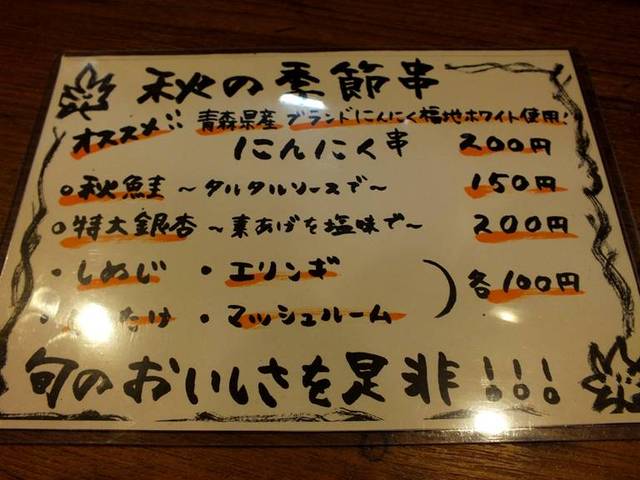 秋の季節串
オススメ!! 青森県産 ブランドにんにく福地ホワイト使用!
にんにく串 200円
○秋鮭 ～タルタルソースで～ 150円
○特大銀杏 ～素あげを塩味で～ 200円
・しめじ ・エリンギ
各100円
・マッシュルーム
旬のおいしさを是非!!!